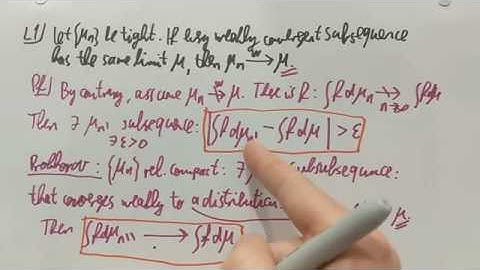 L1) Let {μn} be tight. If every weakly convergent subsequence
has the same limit μ, then μn →w μ.
Pf) By contrary, assume μn ↛w μ. There is f: ∫f dμn ↛ n→∞ ∫f dμ
Then ∃ μn' subsequence: |∫f dμn' − ∫f dμ| > ε
∃ ε>0
Prokhorov: {μn} rel. compact: ∃ subsubsequence:
that converges weakly to a distribution μ.
Then ∫f dμn'' → ∫f dμ